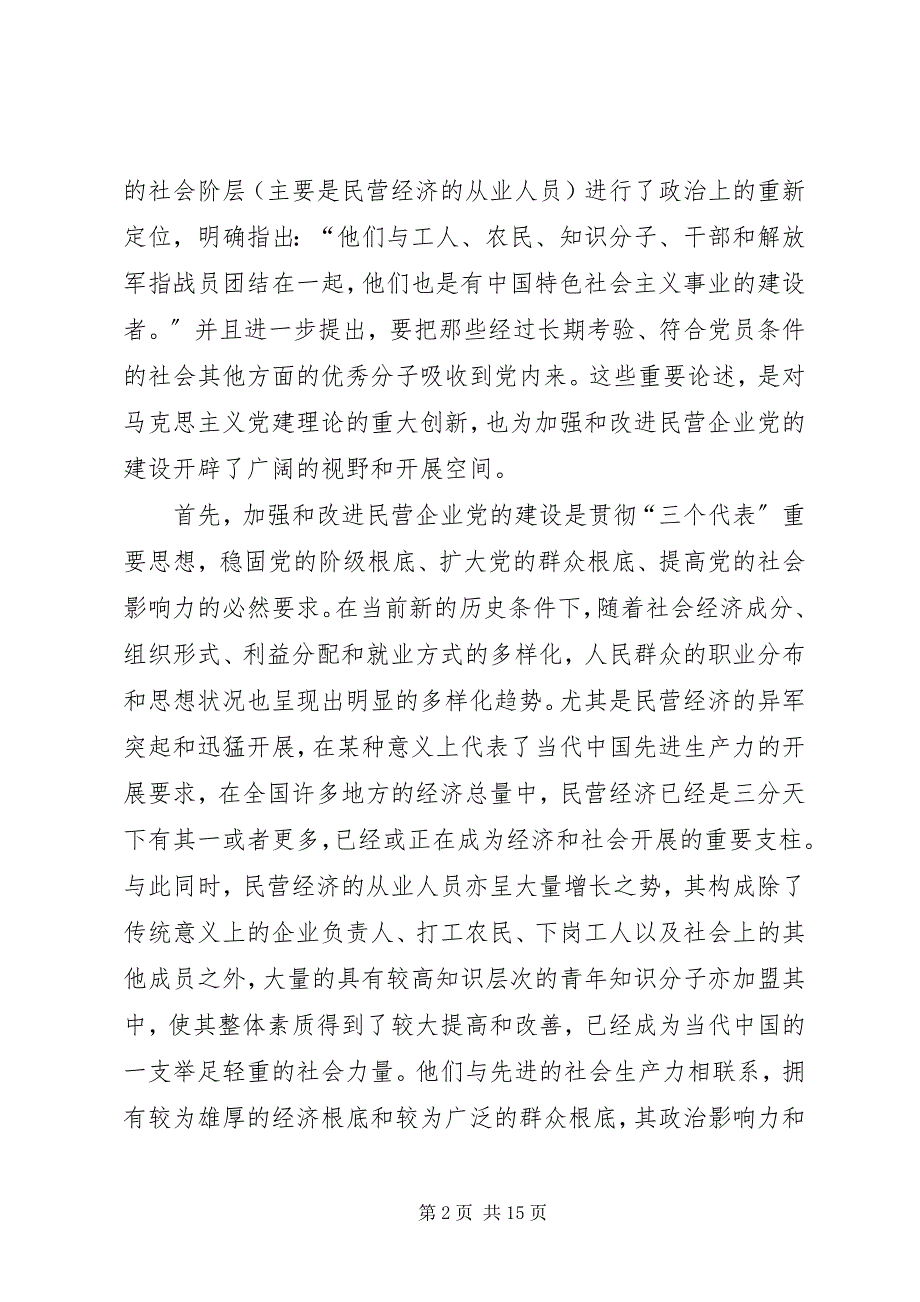 的社会阶层（主要是民营经济的从业人员）进行了政治上的重新
定位，明确指出：“他们与工人、农民、知识分子、干部和解放
军指战员团结在一起，他们也是有中国特色社会主义事业的建设
者。〞并且进一步提出，要把那些经过长期考验、符合党员条件
的社会其他方面的优秀分子吸收到党内来。这些重要论述，是对
马克思主义党建理论的重大创新，也为加强和改进民营企业党的
建设开辟了广阔的视野和开展空间。
首先，加强和改进民营企业党的建设是贯彻“三个代表〞重
要思想，稳固党的阶级根底、扩大党的群众根底、提高党的社会
影响力的必然要求。在当前新的历史条件下，随着社会经济成分、
组织形式、利益分配和就业方式的多样化，人民群众的职业分布
和思想状况也呈现出明显的多样化趋势。尤其是民营经济的异军
突起和迅猛开展，在某种意义上代表了当代中国先进生产力的开
展要求，在全国许多地方的经济总量中，民营经济已经是三分天
下有其一或者更多，已经或正在成为经济和社会开展的重要支柱。
与此同时，民营经济的从业人员亦呈大量增长之势，其构成除了
传统意义上的企业负责人、打工农民、下岗工人以及社会上的其
他成员之外，大量的具有较高知识层次的青年知识分子亦加盟其
中，使其整体素质得到了较大提高和改善，已经成为当代中国的
一支举足轻重的社会力量。他们与先进的社会生产力相联系，拥
有较为雄厚的经济根底和较为广泛的群众根底，其政治影响力和
第 2 页 共 15 页